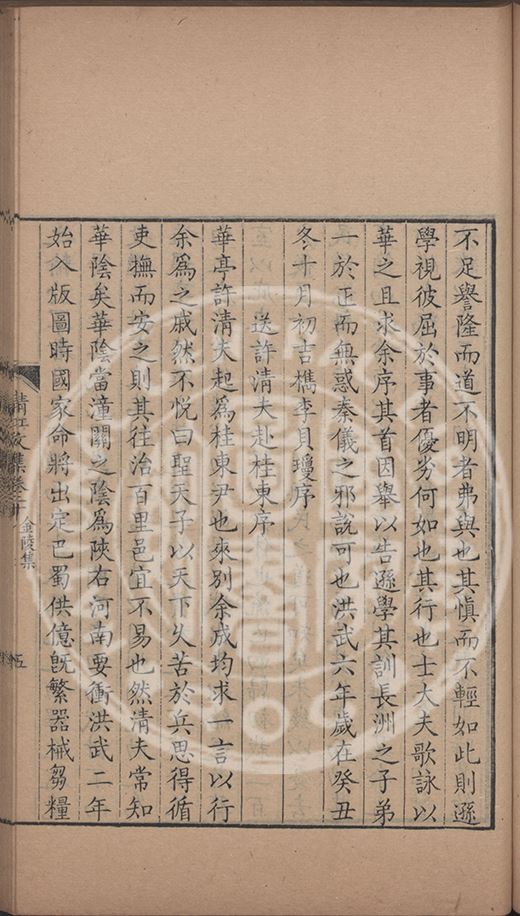 不足譽隆而道不明者弗與也其慎而不輕如此則遜
學視彼屈於事者優劣何如也其行也士大夫歌詠以
華之且求余序其首因舉以告遜學其訓長洲之子弟
一於正而無惑秦儀之邪說可也洪武六年歲在癸丑
冬十月初吉檇李貝瓊序
送許清夫赴桂東序
華亭許清夫起為桂東尹也來別余成均求一言以行
余為之戚然不悅曰聖天子以天下久苦於兵思得循
吏撫而安之則其往治百里邑宜不易也然清夫常知
華陰矣華陰當潼關之陰為陝右河南要衝洪武二年
始入版圖時國家命將出定巴蜀供億既繁器械芻糧
清江文集卷二十 金陵集 五